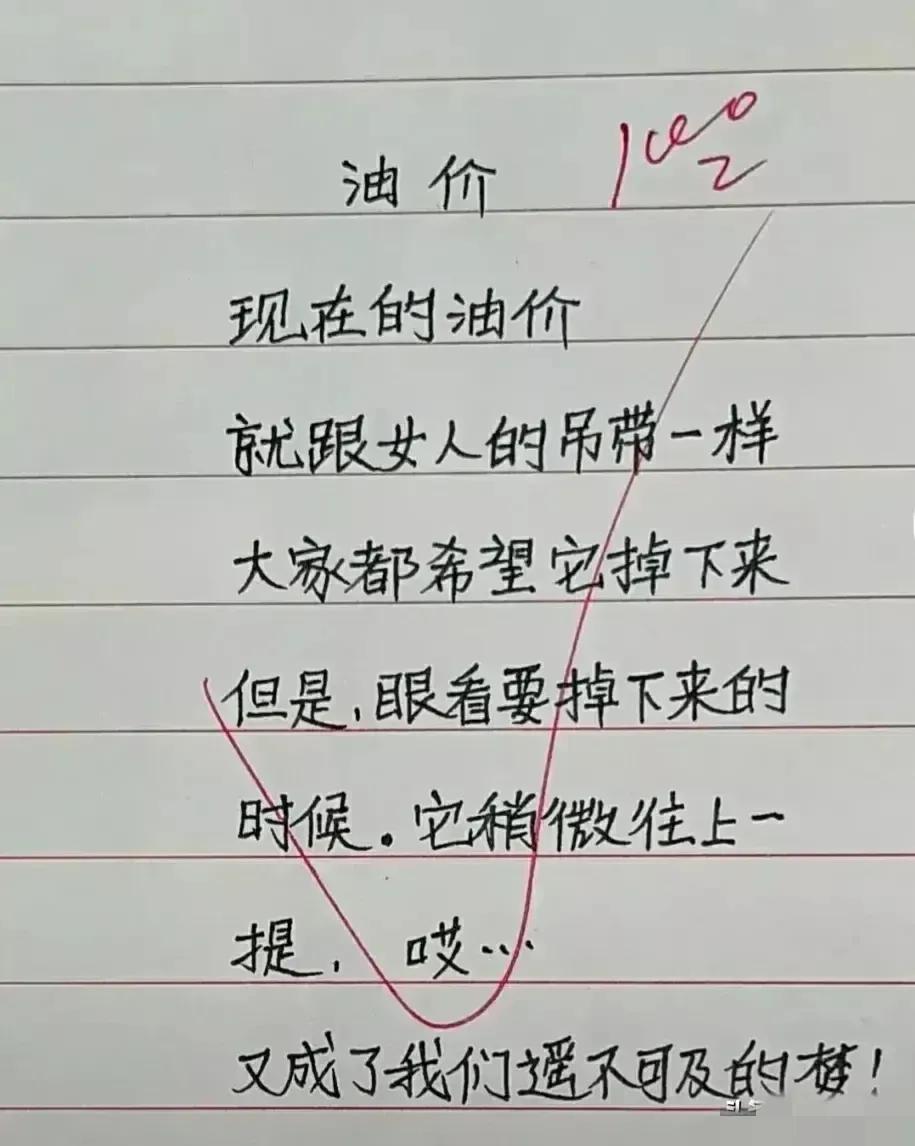 油价
100
现在的油价
就跟女人的吊带一样
大家都希望它掉下来
但是,眼看要掉下来的
时候。它稍微往上一
提, 哎…
又成了我们遥不可及的梦!